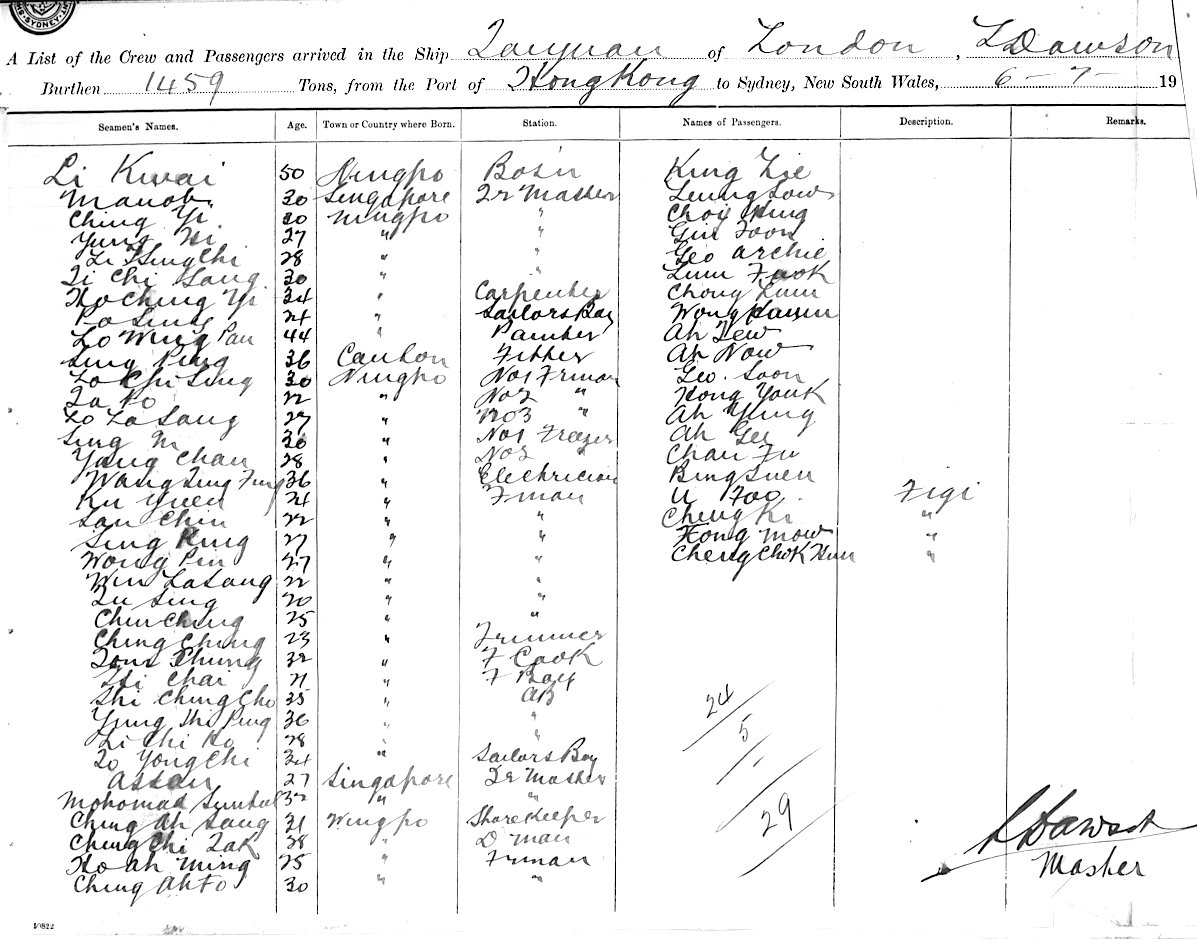 SYDNEY
A List of the Crew and Passengers arrived in the Ship Taiyuan of London, L Dawson
Burthen 1459 Tons, from the Port of Hong Kong to Sydney, New South Wales, 6 - 7 - 19
Seamen's Names. Age. Town or Country where Born. Station. Names of Passengers. Description. Remarks.
Li Kwai 50 Ningpo Bos'n King Lie
Manob 30 Singapore Qr Master Leung Low
Ching Yi 30 Ningpo " Choy Hing
Yung Ni 27 " " Gin Foon
Li Tsing Chi 28 " " Geo Archie
Li Chi Sang 30 " " Lum Fook
Ho Ching Yi 34 " Carpenter Chong Lum
Po Sing 24 " Sailors Boy Wong
Lo Wing Pau 44 " Painter Ah Dew
Sing Ping 36 Canton Fitter Ah Now
Lo Chi Sing 30 Ningpo No1 Firman Geo. Soon
Ta Po 22 " No2 " Hong Youk
Lo La Sang 27 " No3 " Ah Ying
Sing 30 " No1 Freezer Ah Gee
Yang Chan 28 " No2 Chan Fu
Wang Sing Fung 36 " Electrician Bing Suen
Ku Yuen 24 " F'man U Foo Figi
San Chin 22 " " Cheng Ki "
Sing King 27 " " Hong Mow "
Wong Pin 27 " " Cheng Chok Hun "
Win La Sang 22 " "
Lu Sing 20 " "
Chin Ching 25 " "
Ching Ching 23 " Trimmer
Tong Chung 32 " F Cook
Tsi Chai 21 " F Boy
Shi Ching Cho 35 " AB
Yung Shi Ping 36 " "
Li Chi Ko 28 " "
Lo Yong Chi 34 " Sailors Boy
Assan 27 Singapore Qr Master
Mohomad 32 " "
Ching Ah Sang 31 Ningpo Storekeeper
Ching Chi Tak 38 " D man
Ho Ah Ming 25 " Firman
Ching Ah Fo 30 " "
24
5
29
L Dawson
Master
50822